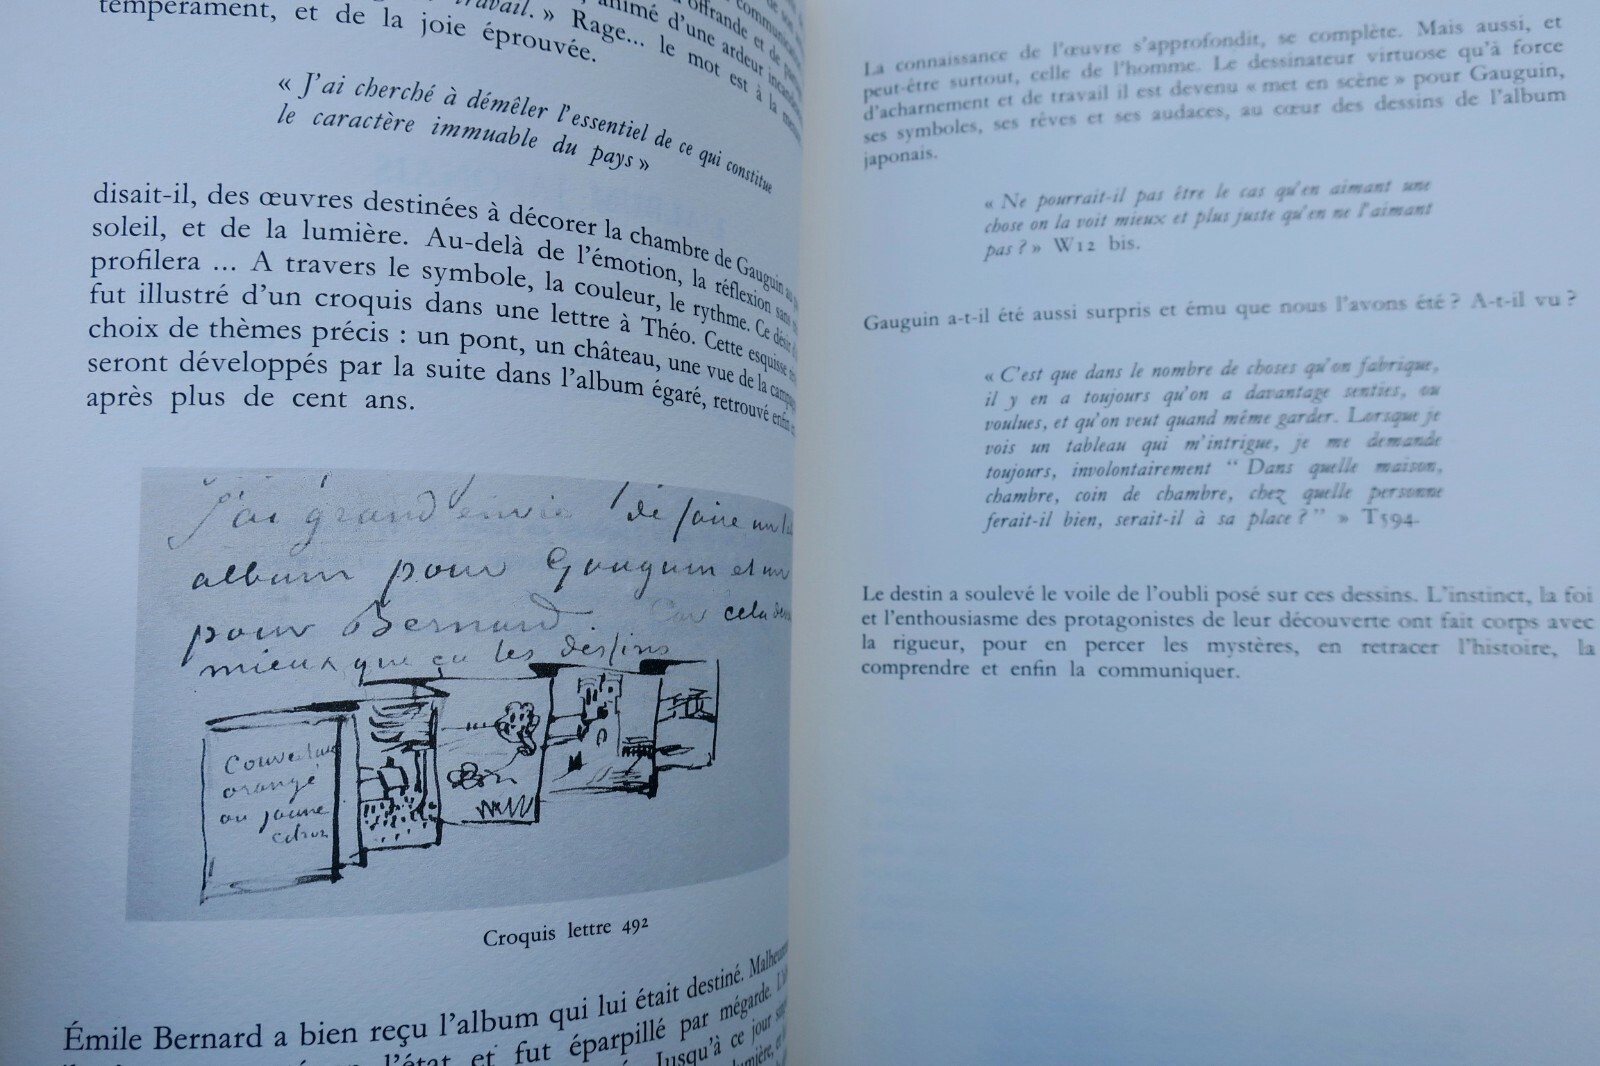 travail. » Rage... le mot est à la
animé d'une ardeur
offrande et de
tempérament, et de la joie éprouvée.
« J'ai cherché à démêler l'essentiel de ce qui constitue
le caractère immuable du pays »
disait-il, des œuvres destinées à décorer la chambre de Gauguin au
soleil, et de la lumière. Au-delà de l'émotion, la réflexion sans
profilera ... A travers le symbole, la couleur, le rythme. Ce désir
fut illustré d'un croquis dans une lettre à Théo. Cette esquisse
choix de thèmes précis : un pont, un château, une vue de la
seront développés par la suite dans l'album égaré, retrouvé enfin
après plus de cent ans.
J'ai grand envie de faire un
album pour Gauguin et un
pour Bernard. Car cela
mieux que ça les dessins
Couverture
orangé
ou jaune
citron
Croquis lettre 492
Émile Bernard a bien reçu l'album qui lui était destiné.
l'état et fut éparpillé par mégarde.
Jusqu'à ce jour
La connaissance de l'œuvre s'approfondit, se complète. Mais aussi, et
peut-être surtout, celle de l'homme. Le dessinateur virtuose qu'à force
d'acharnement et de travail il est devenu « met en scène » pour Gauguin,
ses symboles, ses rêves et ses audaces, au cœur des dessins de l'album
japonais.
« Ne pourrait-il pas être le cas qu'en aimant une
chose on la voit mieux et plus juste qu'en ne l'aimant
pas ? » W12 bis.
Gauguin a-t-il été aussi surpris et ému que nous l'avons été ? A-t-il vu ?
« C'est que dans le nombre de choses qu'on fabrique,
il y en a toujours qu'on a davantage senties, ou
voulues, et qu'on veut quand même garder. Lorsque je
vois un tableau qui m'intrigue, je me demande
toujours, involontairement “ Dans quelle maison,
chambre, coin de chambre, chez quelle personne
ferait-il bien, serait-il à sa place ? ” » T594.
Le destin a soulevé le voile de l'oubli posé sur ces dessins. L'instinct, la foi
et l'enthousiasme des protagonistes de leur découverte ont fait corps avec
la rigueur, pour en percer les mystères, en retracer l'histoire, la
comprendre et enfin la communiquer.